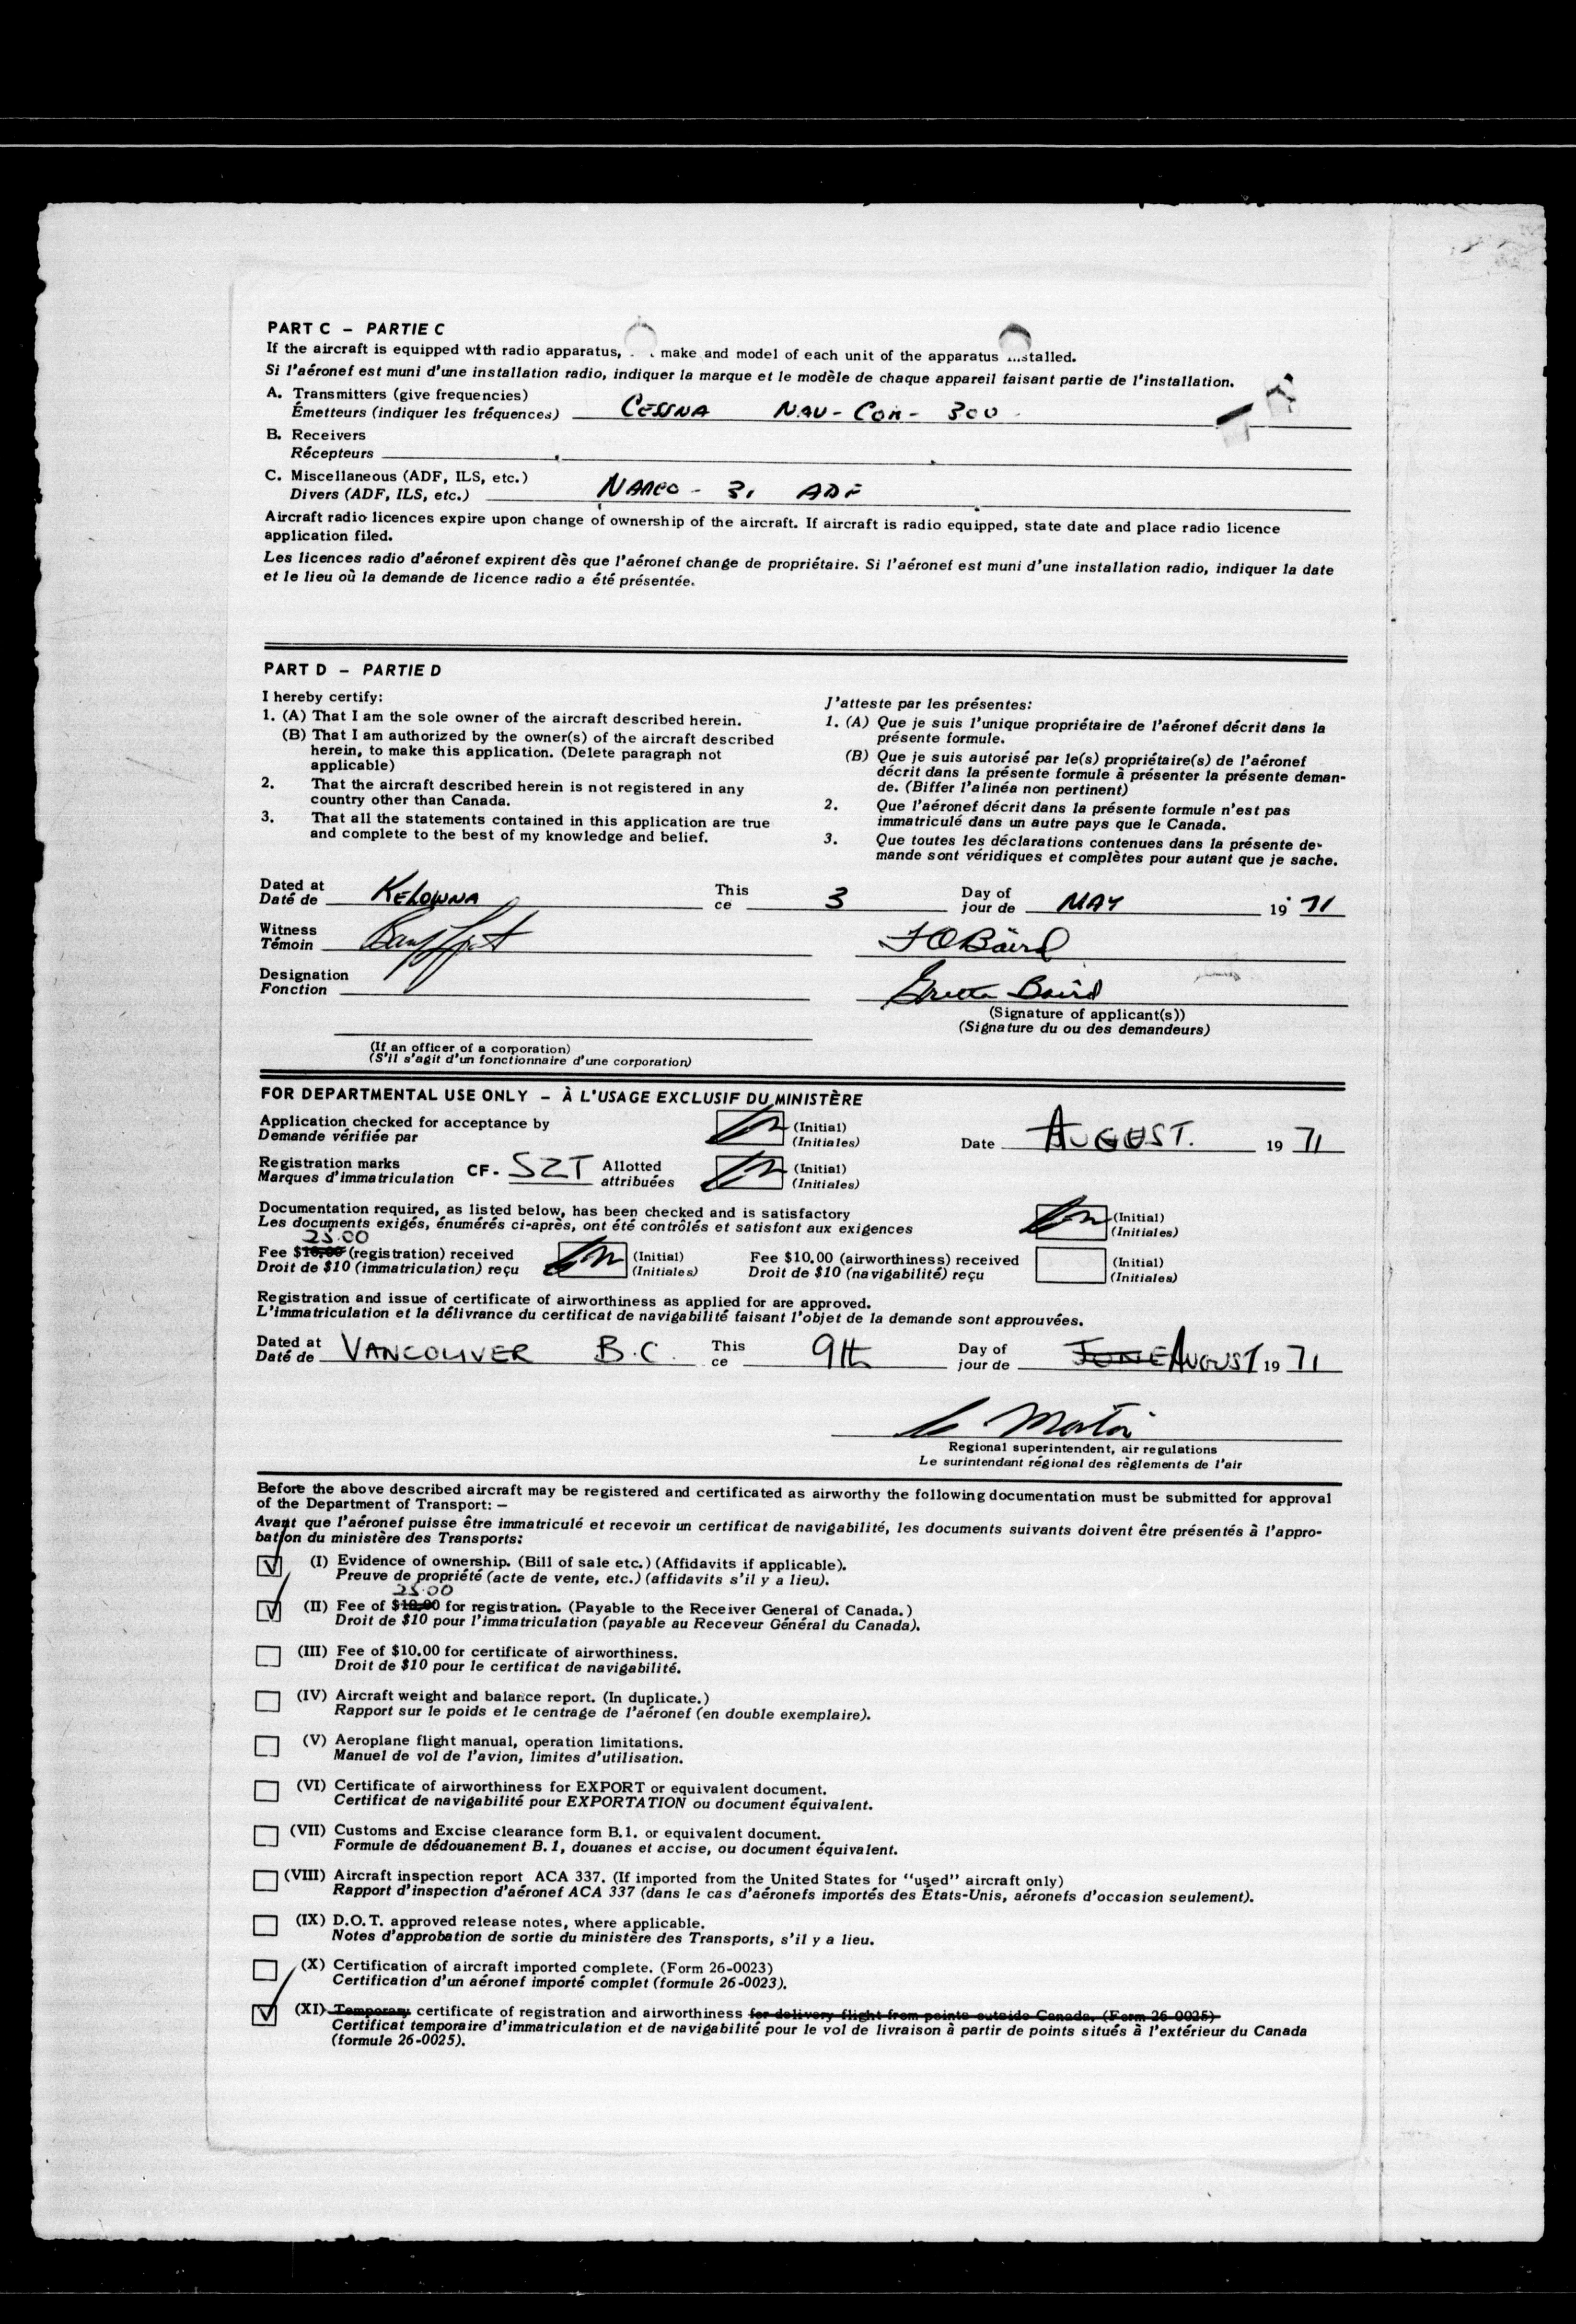 PART C – PARTIE C
If the aircraft is equipped with radio apparatus, make and model of each unit of the apparatus installed.
Si l'aéronef est muni d'une installation radio, indiquer la marque et le modèle de chaque appareil faisant partie de l'installation.
A. Transmitters (give frequencies)
Émetteurs (indiquer les fréquences) CESSNA NAV-COM- 300
B. Receivers
Récepteurs
C. Miscellaneous (ADF, ILS, etc.)
Divers (ADF, ILS, etc.) NARCO - 31 ADF
Aircraft radio licences expire upon change of ownership of the aircraft. If aircraft is radio equipped, state date and place radio licence
application filed.
Les licences radio d'aéronef expirent dès que l'aéronef change de propriétaire. Si l'aéronef est muni d'une installation radio, indiquer la date
et le lieu où la demande de licence radio a été présentée.
PART D – PARTIE D
I hereby certify:
1. (A) That I am the sole owner of the aircraft described herein.
(B) That I am authorized by the owner(s) of the aircraft described
herein, to make this application. (Delete paragraph not
applicable)
2. That the aircraft described herein is not registered in any
country other than Canada.
3. That all the statements contained in this application are true
and complete to the best of my knowledge and belief.
J'atteste par les présentes:
1. (A) Que je suis l'unique propriétaire de l'aéronef décrit dans la
présente formule.
(B) Que je suis autorisé par le(s) propriétaire(s) de l'aéronef
décrit dans la présente formule à présenter la présente deman-
de. (Biffer l'alinéa non pertinent)
2. Que l'aéronef décrit dans la présente formule n'est pas
immatriculé dans un autre pays que le Canada.
3. Que toutes les déclarations contenues dans la présente de-
mande sont véridiques et complètes pour autant que je sache.
Dated at KELOWNA This 3 Day of MAY 19 71
Daté de ce jour de
Witness
Témoin
J O Baird
Designation
Fonction
Baird
(Signature of applicant(s))
(Signature du ou des demandeurs)
(If an officer of a corporation)
(S'il s'agit d'un fonctionnaire d'une corporation)
FOR DEPARTMENTAL USE ONLY – À L'USAGE EXCLUSIF DU MINISTÈRE
Application checked for acceptance by (Initial)
Demande vérifiée par (Initiales)
Date AUGUST. 19 71
Registration marks CF- SZT Allotted (Initial)
Marques d'immatriculation attribuées (Initiales)
Documentation required, as listed below, has been checked and is satisfactory (Initial)
Les documents exigés, énumérés ci-après, ont été contrôlés et satisfont aux exigences (Initiales)
25.00
Fee $10.00 (registration) received (Initial) Fee $10.00 (airworthiness) received (Initial)
Droit de $10 (immatriculation) reçu (Initiales) Droit de $10 (navigabilité) reçu (Initiales)
Registration and issue of certificate of airworthiness as applied for are approved.
L'immatriculation et la délivrance du certificat de navigabilité faisant l'objet de la demande sont approuvées.
Dated at VANCOUVER B.C. This 9th Day of JUNE AUGUST 19 71
Daté de ce jour de
Martin
Regional superintendent, air regulations
Le surintendant régional des règlements de l'air
Before the above described aircraft may be registered and certificated as airworthy the following documentation must be submitted for approval
of the Department of Transport: –
Avant que l'aéronef puisse être immatriculé et recevoir un certificat de navigabilité, les documents suivants doivent être présentés à l'appro-
bation du ministère des Transports:
(I) Evidence of ownership. (Bill of sale etc.) (Affidavits if applicable).
Preuve de propriété (acte de vente, etc.) (affidavits s'il y a lieu).
25.00
(II) Fee of $10.00 for registration. (Payable to the Receiver General of Canada.)
Droit de $10 pour l'immatriculation (payable au Receveur Général du Canada).
(III) Fee of $10.00 for certificate of airworthiness.
Droit de $10 pour le certificat de navigabilité.
(IV) Aircraft weight and balance report. (In duplicate.)
Rapport sur le poids et le centrage de l'aéronef (en double exemplaire).
(V) Aeroplane flight manual, operation limitations.
Manuel de vol de l'avion, limites d'utilisation.
(VI) Certificate of airworthiness for EXPORT or equivalent document.
Certificat de navigabilité pour EXPORTATION ou document équivalent.
(VII) Customs and Excise clearance form B.1. or equivalent document.
Formule de dédouanement B.1, douanes et accise, ou document équivalent.
(VIII) Aircraft inspection report ACA 337. (If imported from the United States for "used" aircraft only)
Rapport d'inspection d'aéronef ACA 337 (dans le cas d'aéronefs importés des États-Unis, aéronefs d'occasion seulement).
(IX) D.O.T. approved release notes, where applicable.
Notes d'approbation de sortie du ministère des Transports, s'il y a lieu.
(X) Certification of aircraft imported complete. (Form 26-0023)
Certification d'un aéronef importé complet (formule 26-0023).
(XI) Temporary certificate of registration and airworthiness for delivery flight from points outside Canada. (Form 26-0025)
Certificat temporaire d'immatriculation et de navigabilité pour le vol de livraison à partir de points situés à l'extérieur du Canada
(formule 26-0025).